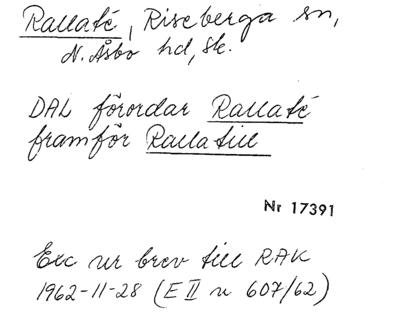 Rallaté, Riseberga sn,
N. Åsbo hd, Sk.
DAL förordar Rallaté
framför Rallatill
Nr 17391
Exc ur brev till RAK
1962-11-28 (E II u 607/62)